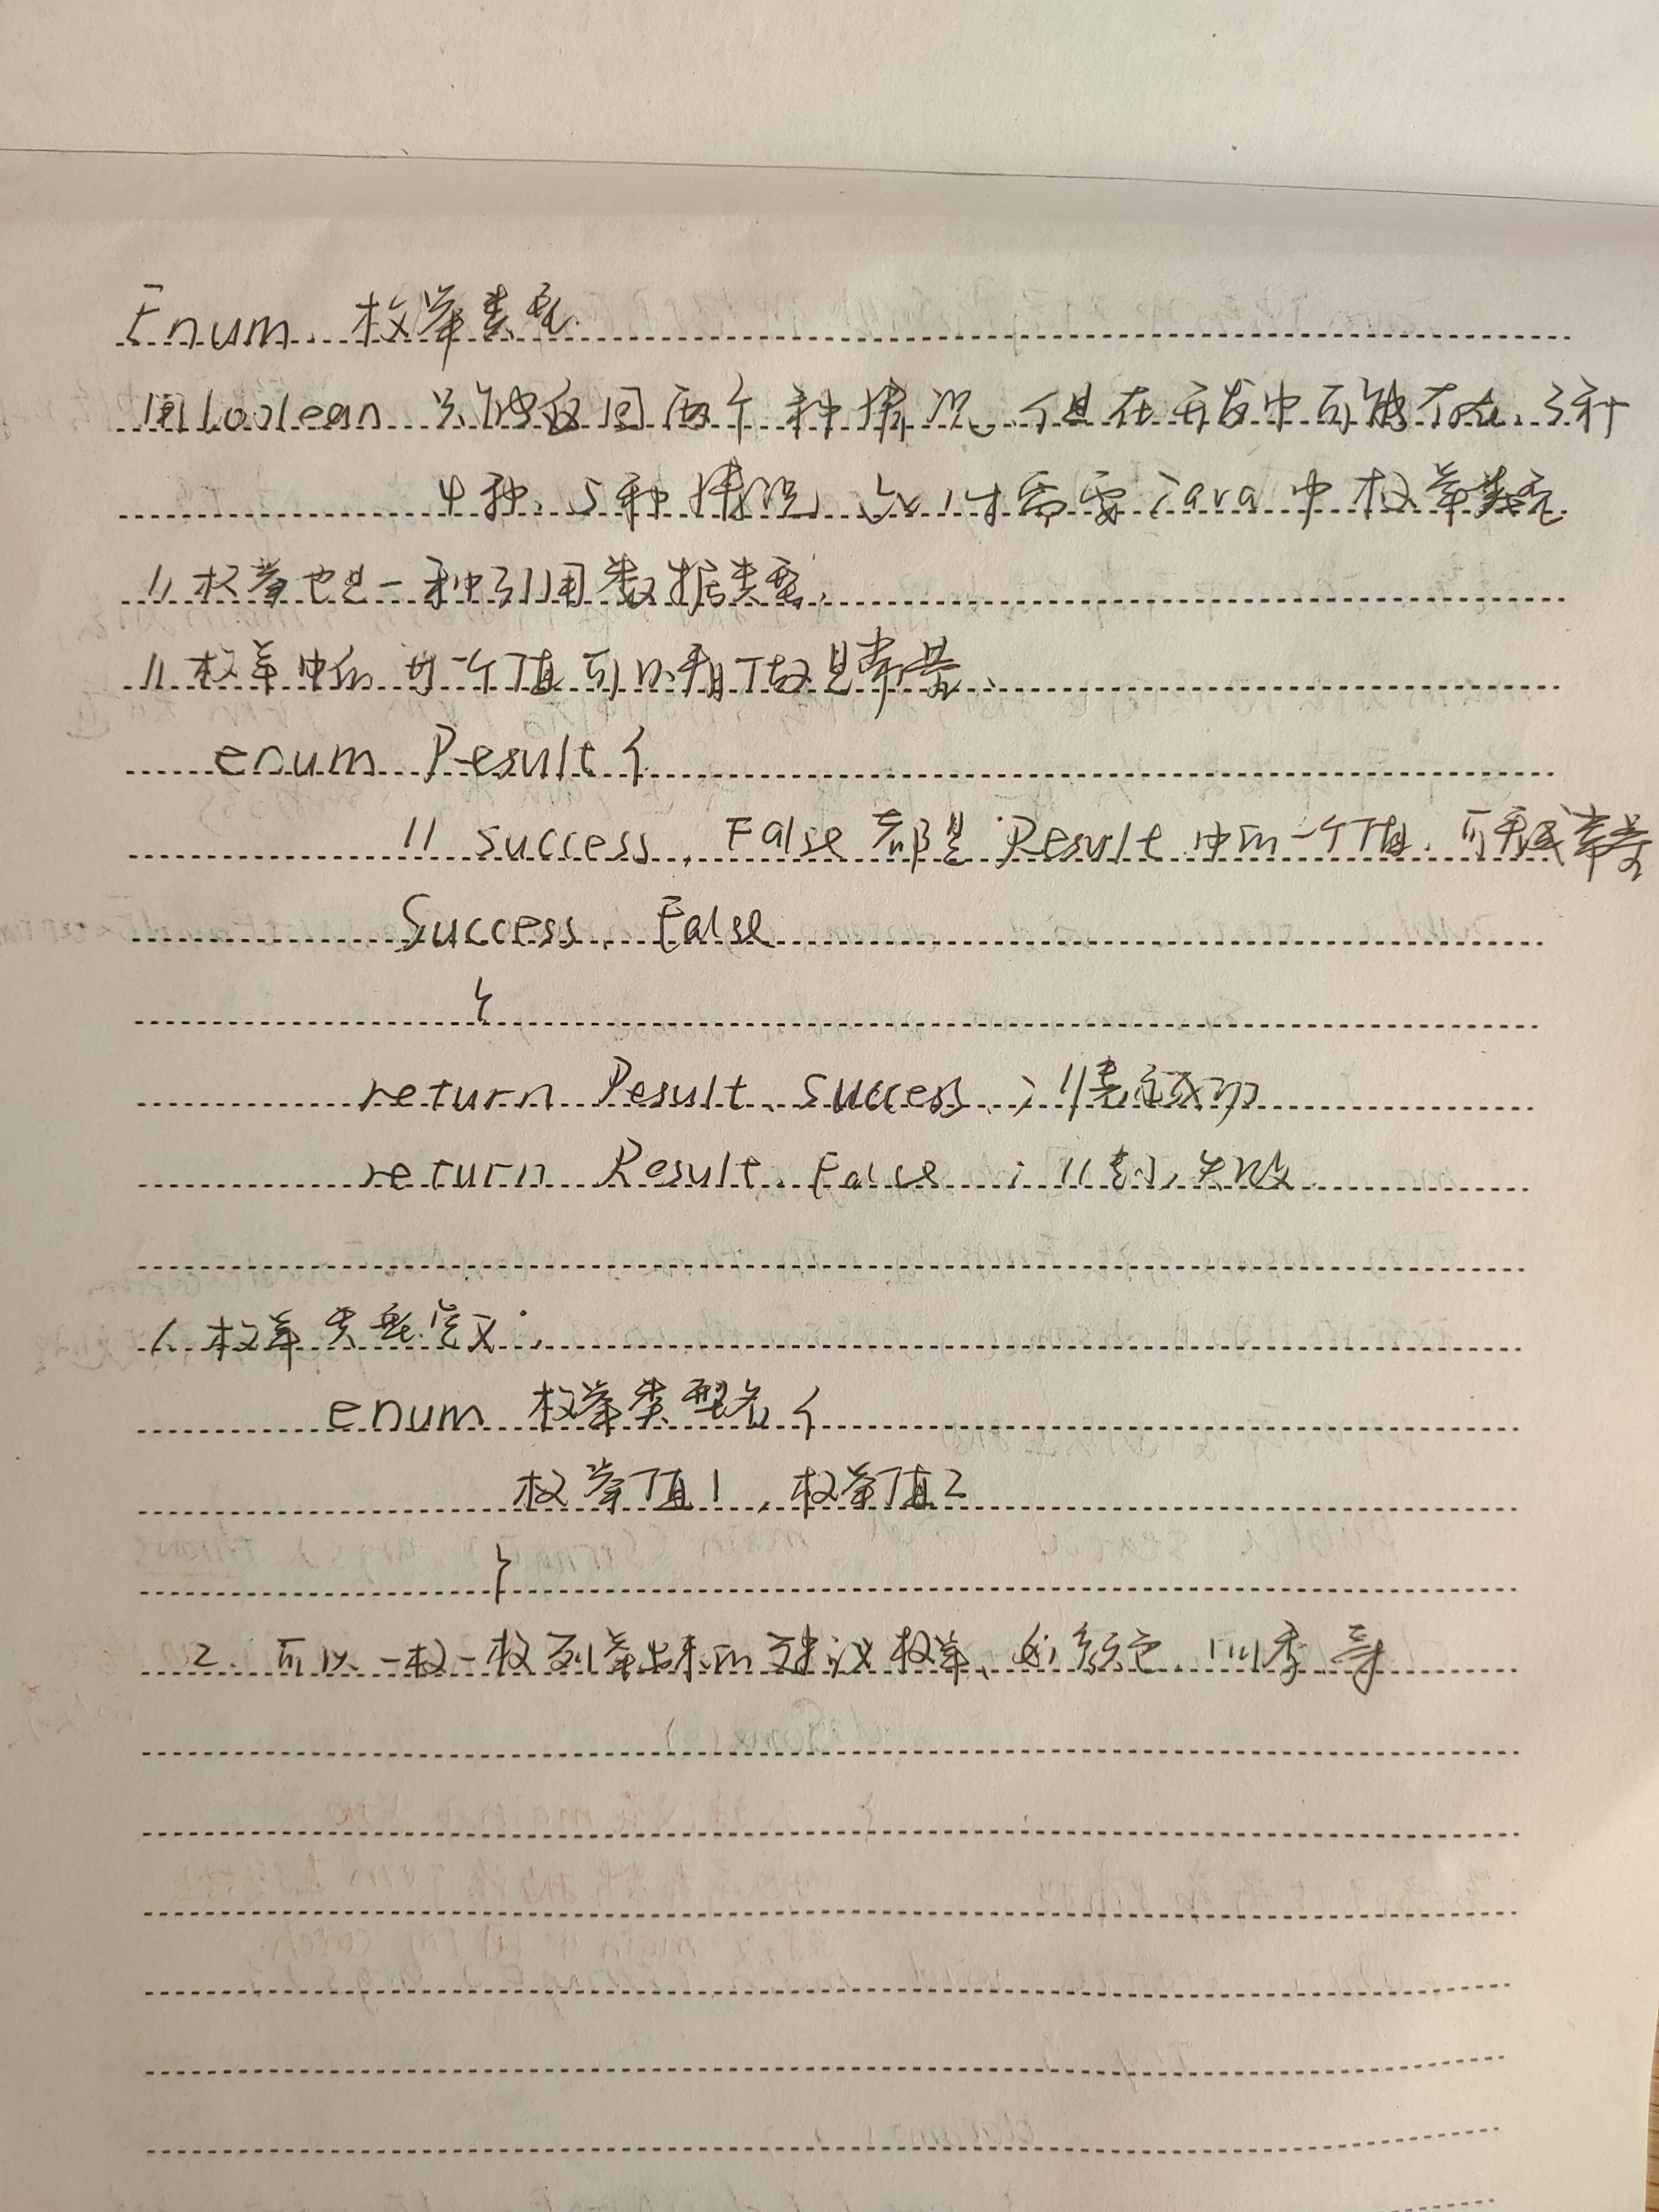 Enum 枚举类型.
用boolean 只能返回两个种情况,但在开发中可能存在3种
4种、5种情况,这时需要java中枚举类型
// 枚举也是一种引用数据类型.
// 枚举中的每一个值可以看做是常量.
enum Result {
// success, False 都是 Result 中的一个值, 可看成常量
Success, False
}
return Result. success ; //表示成功
return Result. False ; //表示失败
1. 枚举类型定义:
enum 枚举类型名 {
枚举值1, 枚举值2
}
2. 可以一枚一枚列举出来的建议枚举、如颜色、四季等